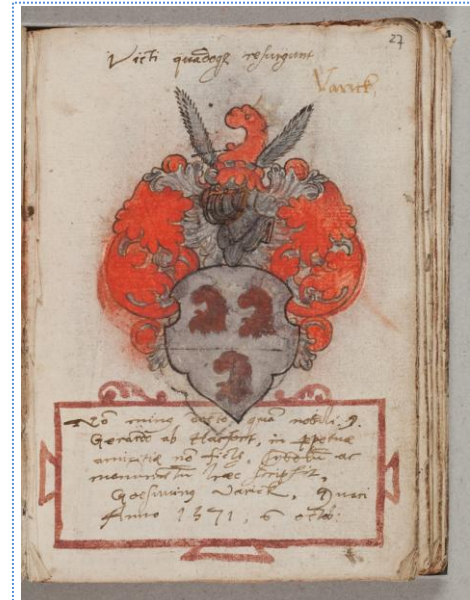 27
Victi quādoq₃ resurgunt
Varick
Nō minus docto, quā nobili, D.
Gerardo ab Hacfort, in ppetuæ
amicitiæ nō fictæ, ac
monumētū hæc scripsit,
Goeswinus Varick,
Anno 1571, 6 octob: